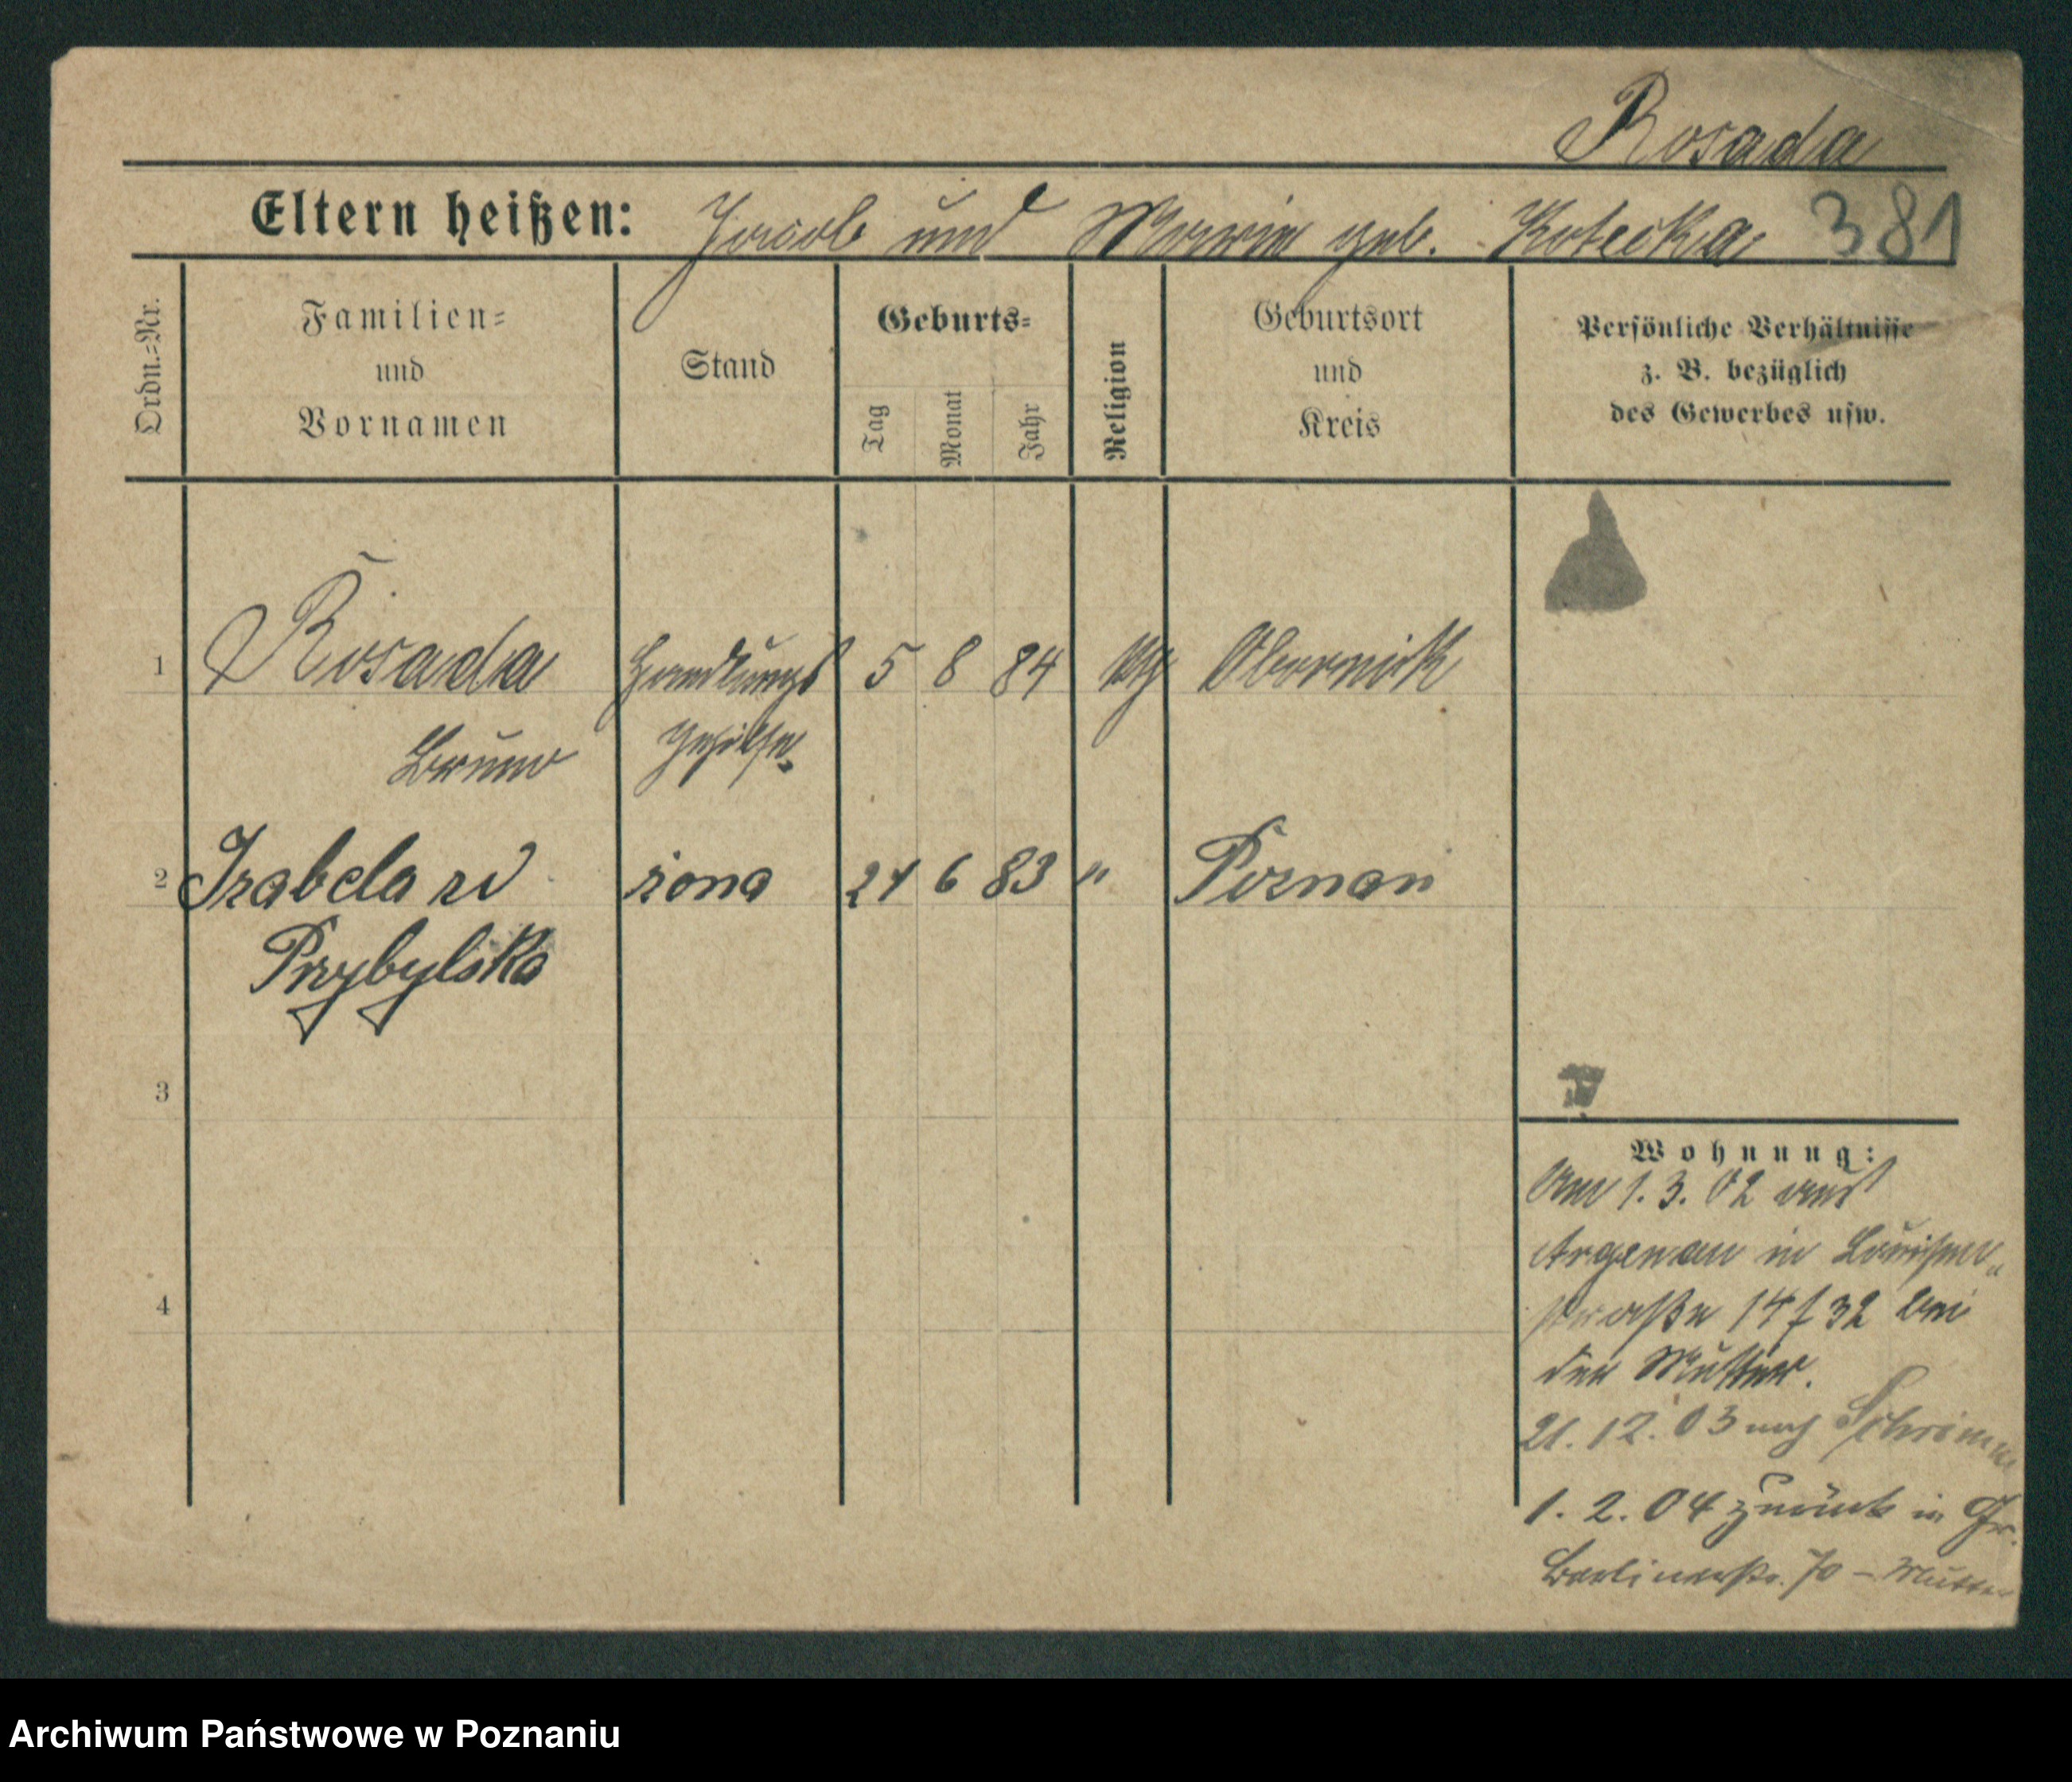 Rosada
Eltern heißen: Jacob und Maria geb. Kotecka 381
Ordn.=Nr.
Familien=
und
Vornamen
Stand
Geburts=
Tag
Monat
Jahr
Religion
Geburtsort
und
Kreis
Persönliche Verhältnisse
z. B. bezüglich
des Gewerbes usw.
1 Rosada Handlungs 5 8 84 kth Obornik
Bruno gehilfe
2 Izabela zd żona 24 6 83 " Poznań
Przybylska
3
4
Wohnung:
Am 1. 3. 02 aus
Argenau in Louisen„
straße 14 f 32 bei
der Mutter.
21. 12. 03 nach Schrimm
1. 2. 04 zurück in Gr.
Berlinerstr. 70 – Mutter
Archiwum Państwowe w Poznaniu